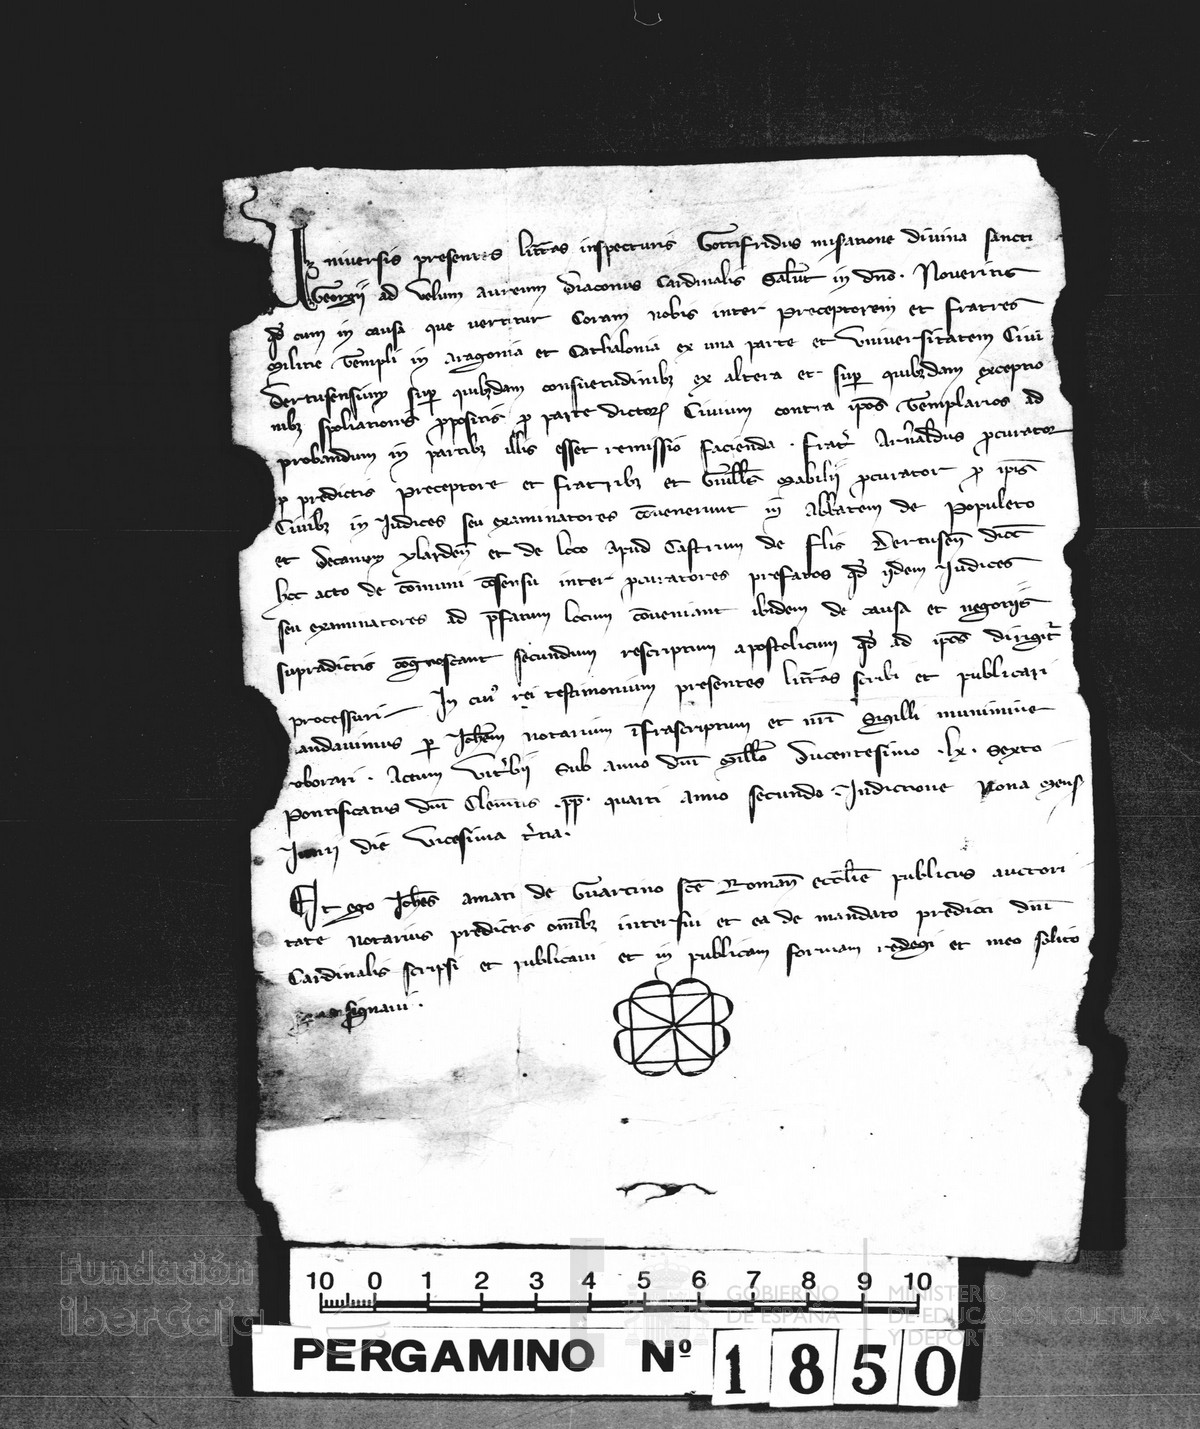 Universis presentes litteras inspecturis Gottifridus miseratione divina sancti
Georgii ad Velum aureum Diaconus Cardinalis Salutem in dno. Noveritis
qd cum in causa que vertitur Coram nobis inter Preceptorem et Fratres
Militie Templi in Aragonia et Cathalonia ex una parte et Universitatem Civium
Dertusensium sup quibusdam consuetudinibz ex altera et sup quibusdam exceptio
nibz spoliationis propositis p parte dictorum Civium contra ipsos Templarios ad
probandum in partibz illis esset remissio facienda. Frater Arnaldus pcurator
p predictis Preceptore et Fratribz et Guills Mabilii pcurator p ipis
Civibz in Iudices seu examinatores convenerunt in Abbatem de Populeto
et Decanum Ylerden et de loco apud Castrum de Flix Dertusen dioc
hoc acto de comuni consensu inter pcuratores prefatos qd iidem Iudices
seu examinatores ad pfatum locum conveniant ibidem de causa et negotiis
supradictis cognoscant secundum rescriptum apostolicum qd ad ipos dirigitur
processuri. In cuius rei testimonium presentes litteras scribi et publicari
mandavimus p Iohem notarium infrascriptum et nri Sigilli munimine
roborari. Actum Viterbii sub anno dni Millo Ducentesimo .lx. sexto
Pontificatus dni Clementis .pp. quarti anno secundo. Indictione Nona mens
Iunii die vicesima tertia.
Et ego Iohes Amati de Guarcino sce Romane ecclesie publicus auctori
tate notarius predictis omnibz interfui et ea de mandato predicti dni
Cardinalis scripsi et publicavi et in publicam formam redegi et meo solito
signavi.
10 0 1 2 3 4 5 6 7 8 9 10
PERGAMINO Nº 1850
Fundación
iberCaja
GOBIERNO
DE ESPAÑA
MINISTERIO
DE EDUCACIÓN, CULTURA
Y DEPORTE